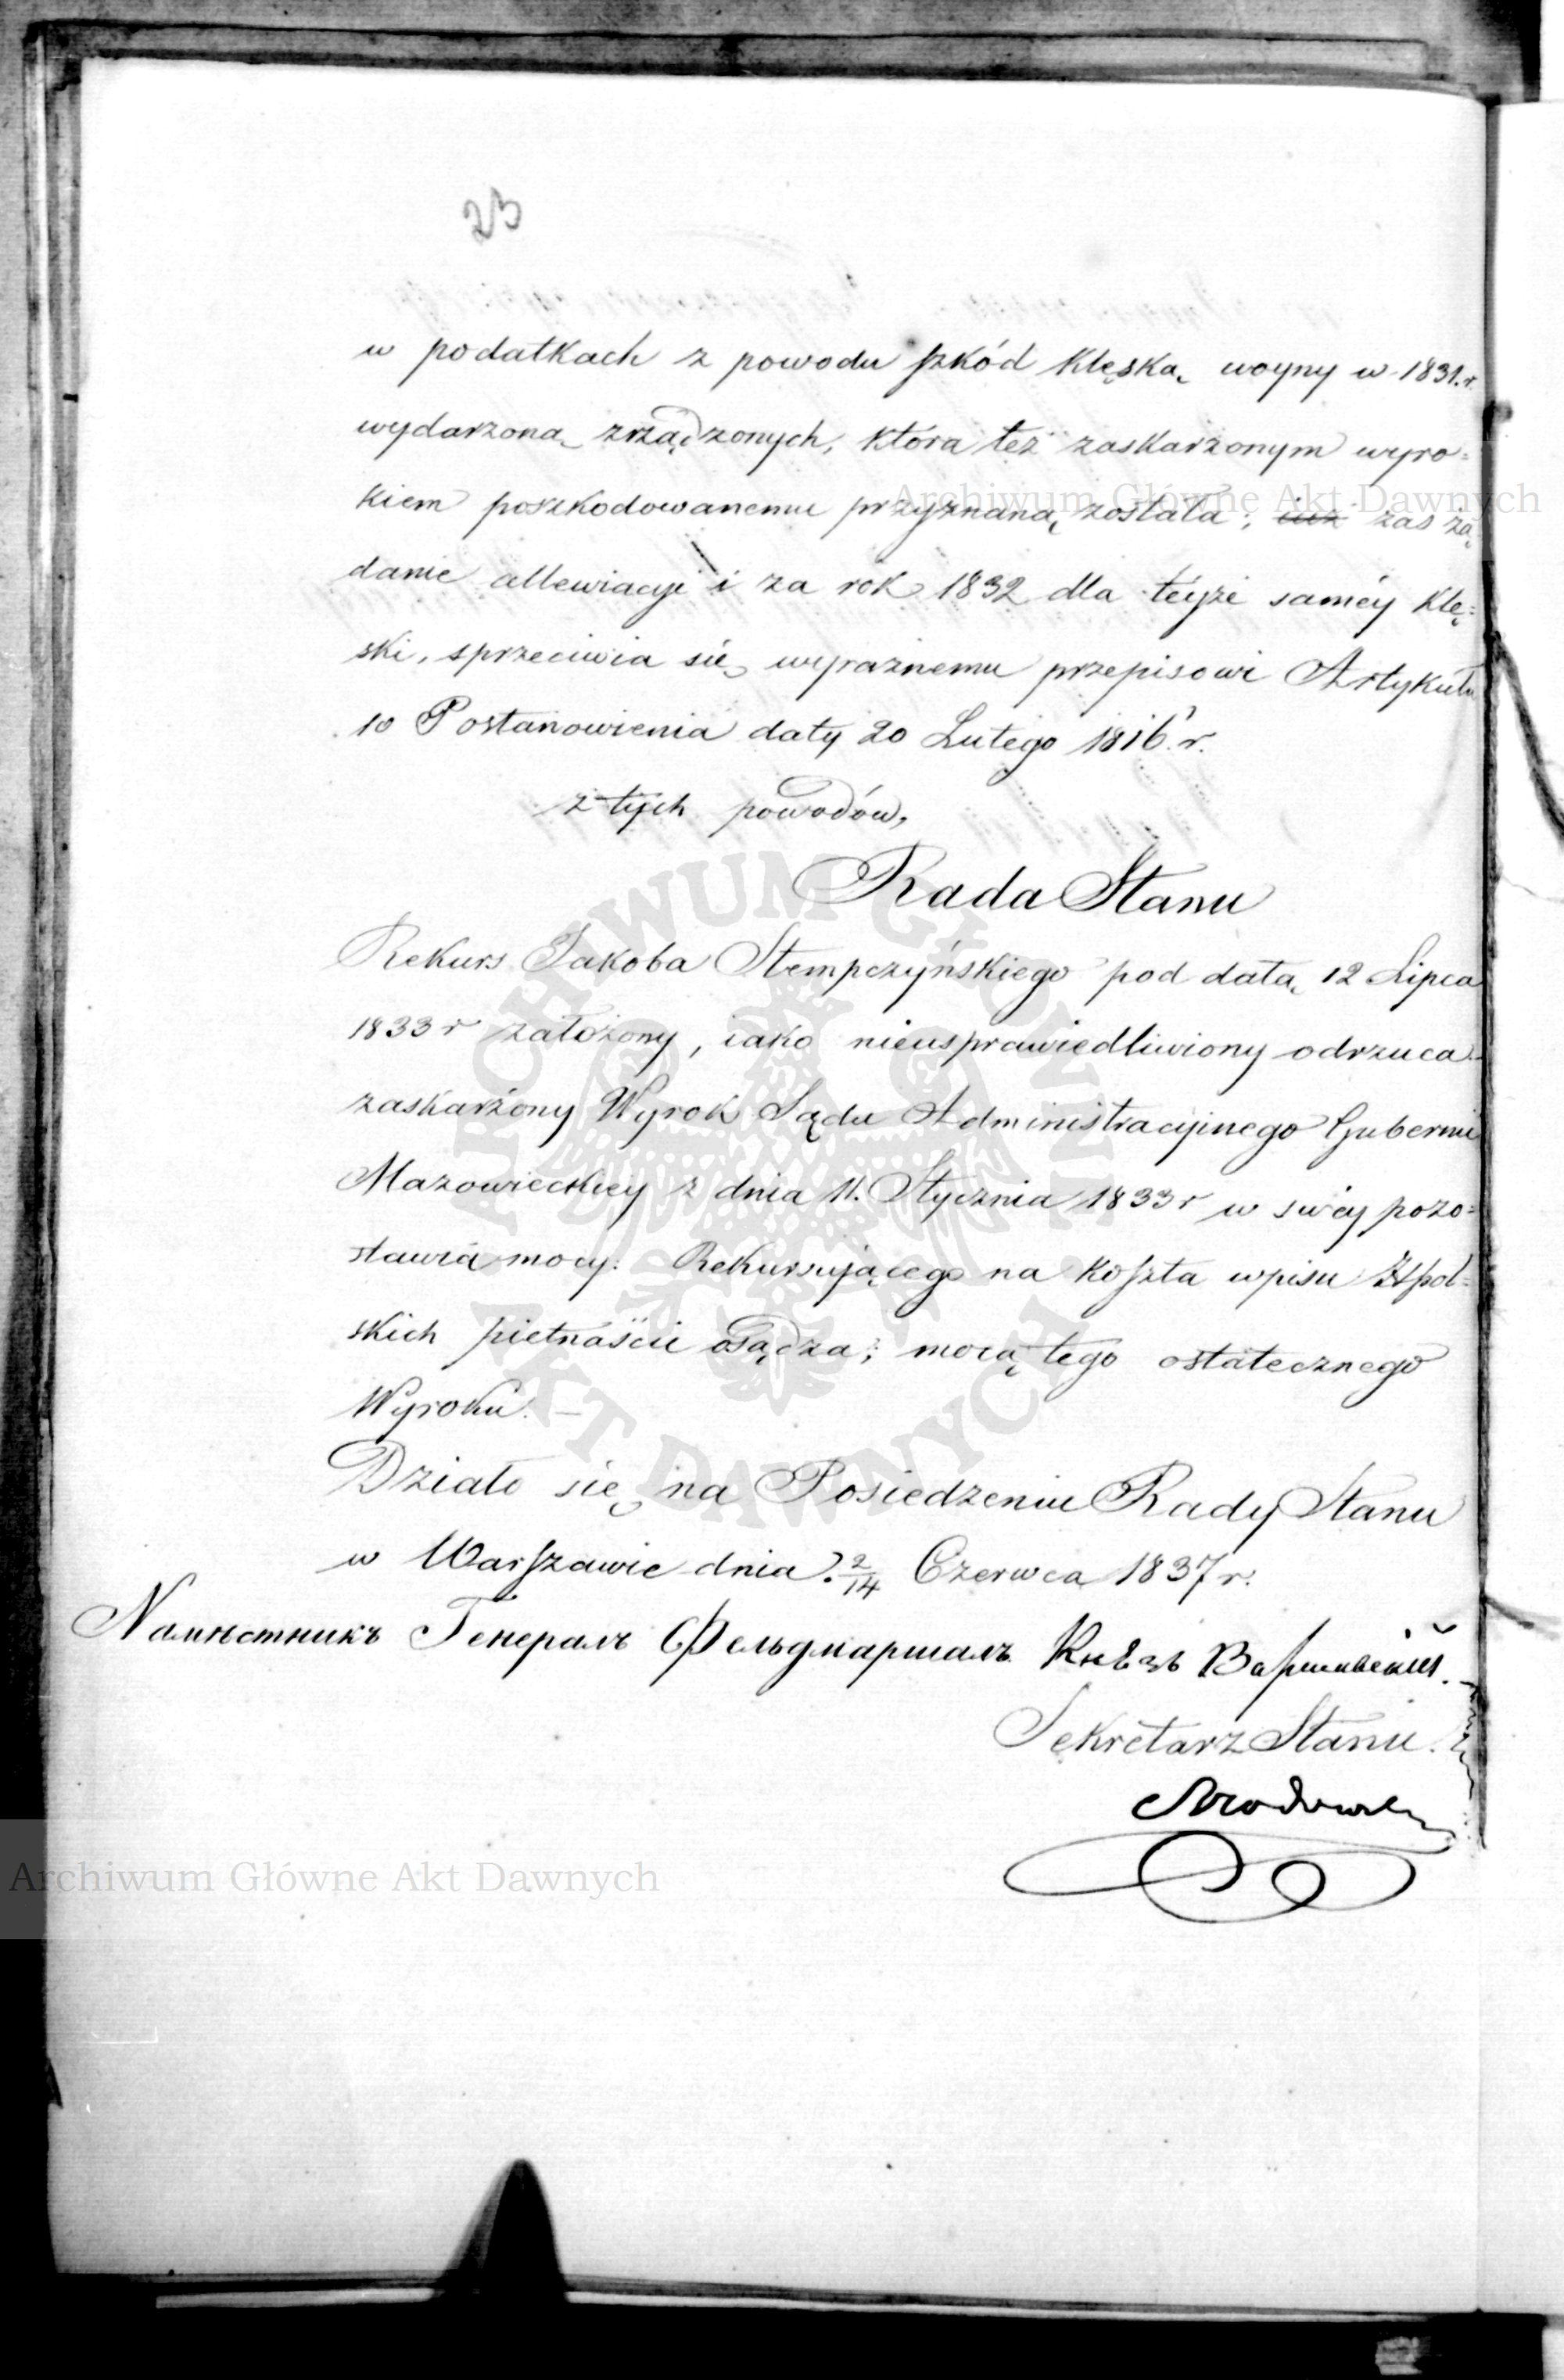 23
w podatkach z powodu szkód klęską woyny w 1831. r.
wydarzoną zrządzonych, która też zaskarżonym wyro=
kiem poszkodowanemu przyznaną została; iuż zas żą
danie allewiacyi i za rok 1832 dla téyże saméy klę=
ski, sprzeciwia się wyraźnemu przepisowi Artykułu
10 Postanowienia daty 20 Lutego 1816. r.
z tych powodów,
Rada Stanu
Rekurs Jakoba Stempczyńskiego pod datą 12 Lipca
1833 r założony, iako nieusprawiedliwiony odrzuca
zaskarżony Wyrok Sądu Administracyinego Gubernii
Mazowieckiey z dnia 11. Stycznia 1833 r w swéy pozo=
stawia mocy. Rekursuiącego na koszta wpisu Złpol=
skich pietnaście osądza; mocą tego ostatecznego
Wyroku. —
Działo się na Posiedzeniu Rady Stanu
w Warszawie dnia 2/14 Czerwca 1837 r.
Намѣстникъ Генералъ Фельдмаршалъ Князь Варшавскій.
Sekretarz Stanu.
Archiwum Główne Akt Dawnych
ARCHIWUM GŁÓWNE AKT DAWNYCH
Archiwum Główne Akt Dawnych